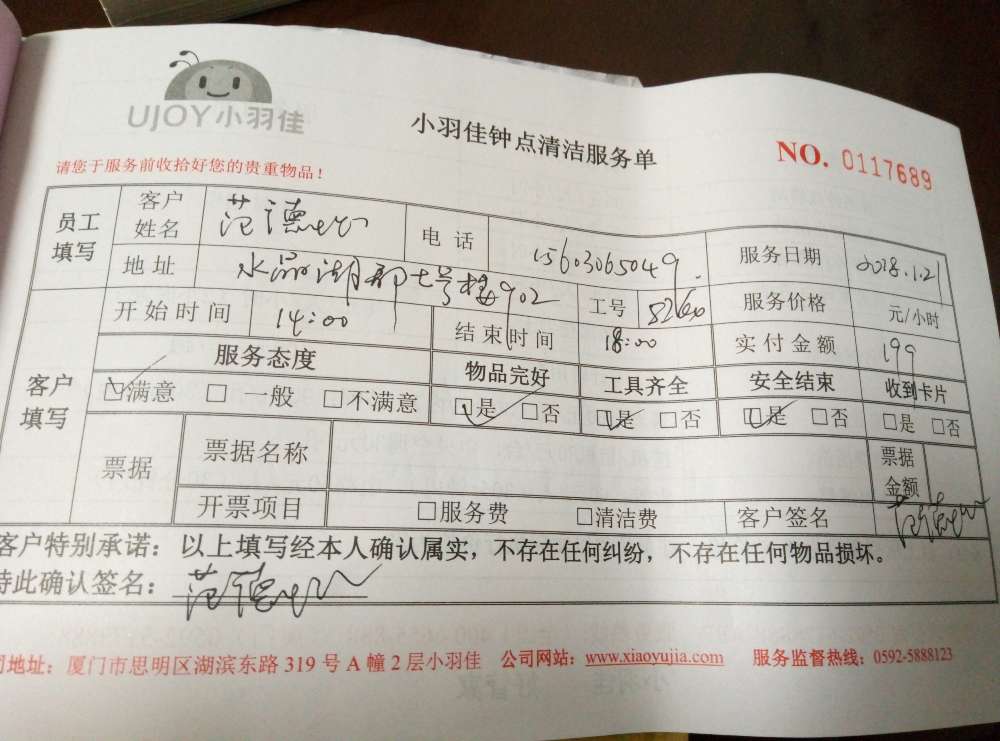 UJOY小羽佳
小羽佳钟点清洁服务单
NO. 0117689
请您于服务前收拾好您的贵重物品！
员工填写 客户姓名 范德 电话 15603065049 服务日期 2018.1.21
地址 水晶湖郡七号楼902 工号 服务价格 元/小时
开始时间 14:00 结束时间 18:00 实付金额 199
客户填写 服务态度 物品完好 工具齐全 安全结束 收到卡片
☑满意 □一般 □不满意 ☑是 □否 ☑是 □否 ☑是 □否 □是 □否
票据 票据名称 票据金额
开票项目 □服务费 □清洁费 客户签名 范德
客户特别承诺：以上填写经本人确认属实，不存在任何纠纷，不存在任何物品损坏。
特此确认签名：范德
司地址：厦门市思明区湖滨东路 319 号 A 幢 2 层小羽佳 公司网站：www.xiaoyujia.com 服务监督热线：0592-5888123